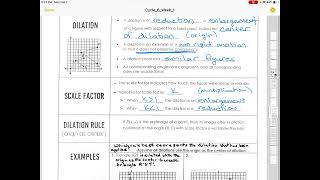 Cycle_6_Week_1
DILATION
• A dilation is a reduction or enlargement
of a figure with respect to a fixed point, called the center
of dilation (origin)
• A dilation is an example of a non rigid motion
in that it does not preserve congruency
• A dilation produces similar figures
• All corresponding angles are congruent, and all corresponding
sides are proportional
SCALE FACTOR
• The scale factor indicates how much the figure will enlarge or reduce.
• Variable for scale factor: K (multiplication)
• When K>1 the dilation is an enlargement
• When K<1 the dilation is a reduction
DILATION RULE
(origin as center)
If P(x, y) is the preimage of a point, then its image after a dilation
centered at the origin (0, 0) with scale factor k will follow the rule:
Which rule best represents the dilation that has been
applied?
Assume all dilations use the origin as the center of dilation.
EXAMPLES
1. Triangle
2.